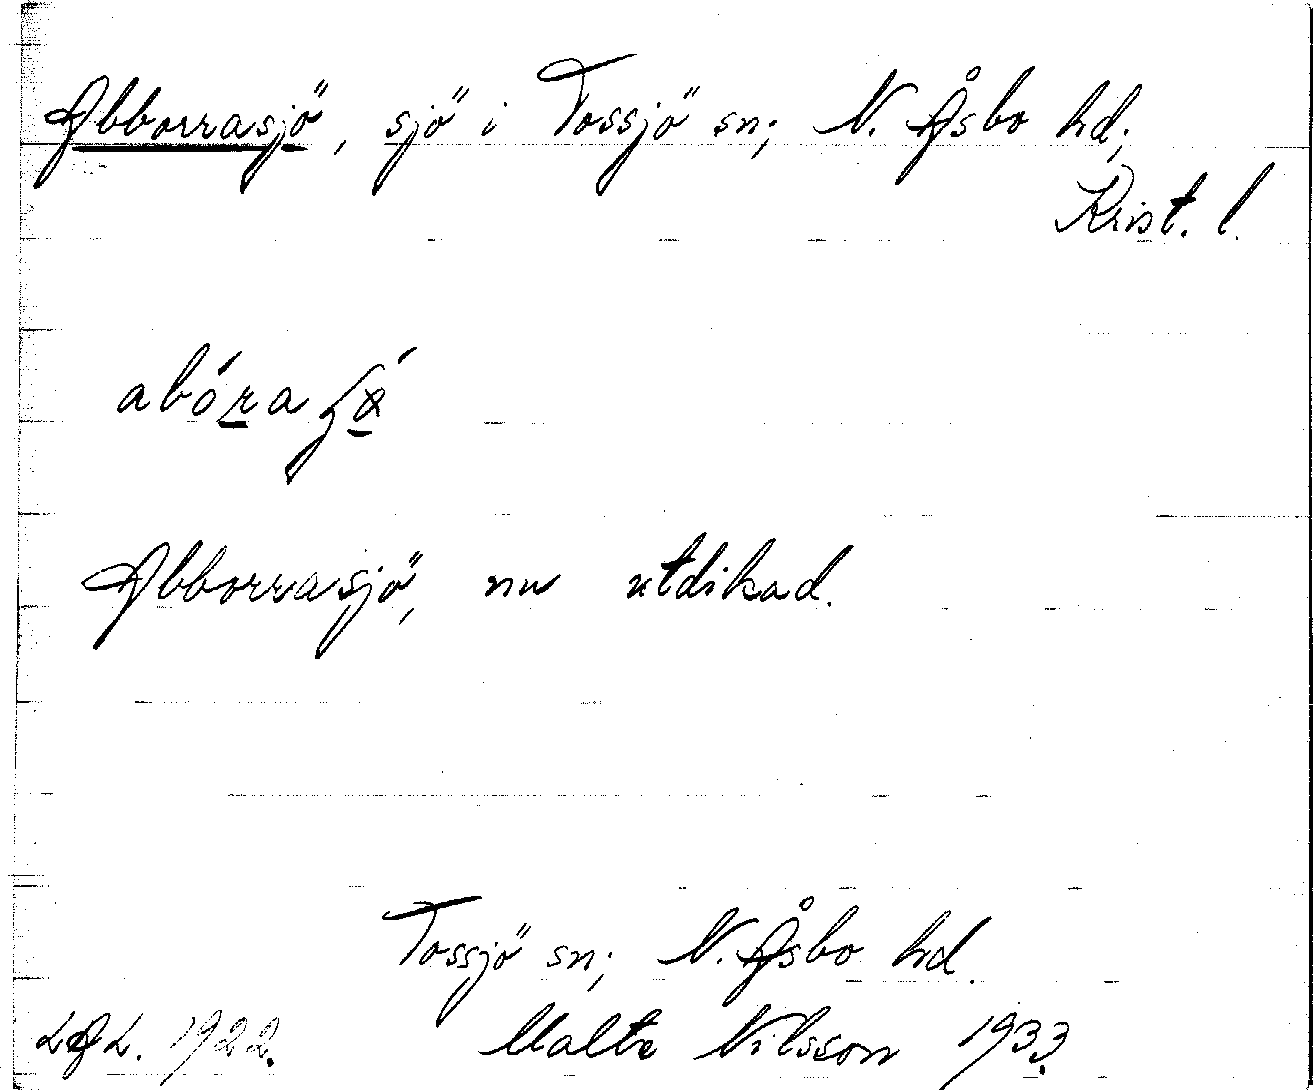 Abborrasjö, sjö i Tossjö sn; N. Åsbo hd;
Krist. l.
abóraʃǿ
Abborrasjö, nu utdikad.
Tossjö sn; N. Åsbo hd.
LAL. 1922. Malte Nilsson 1933.